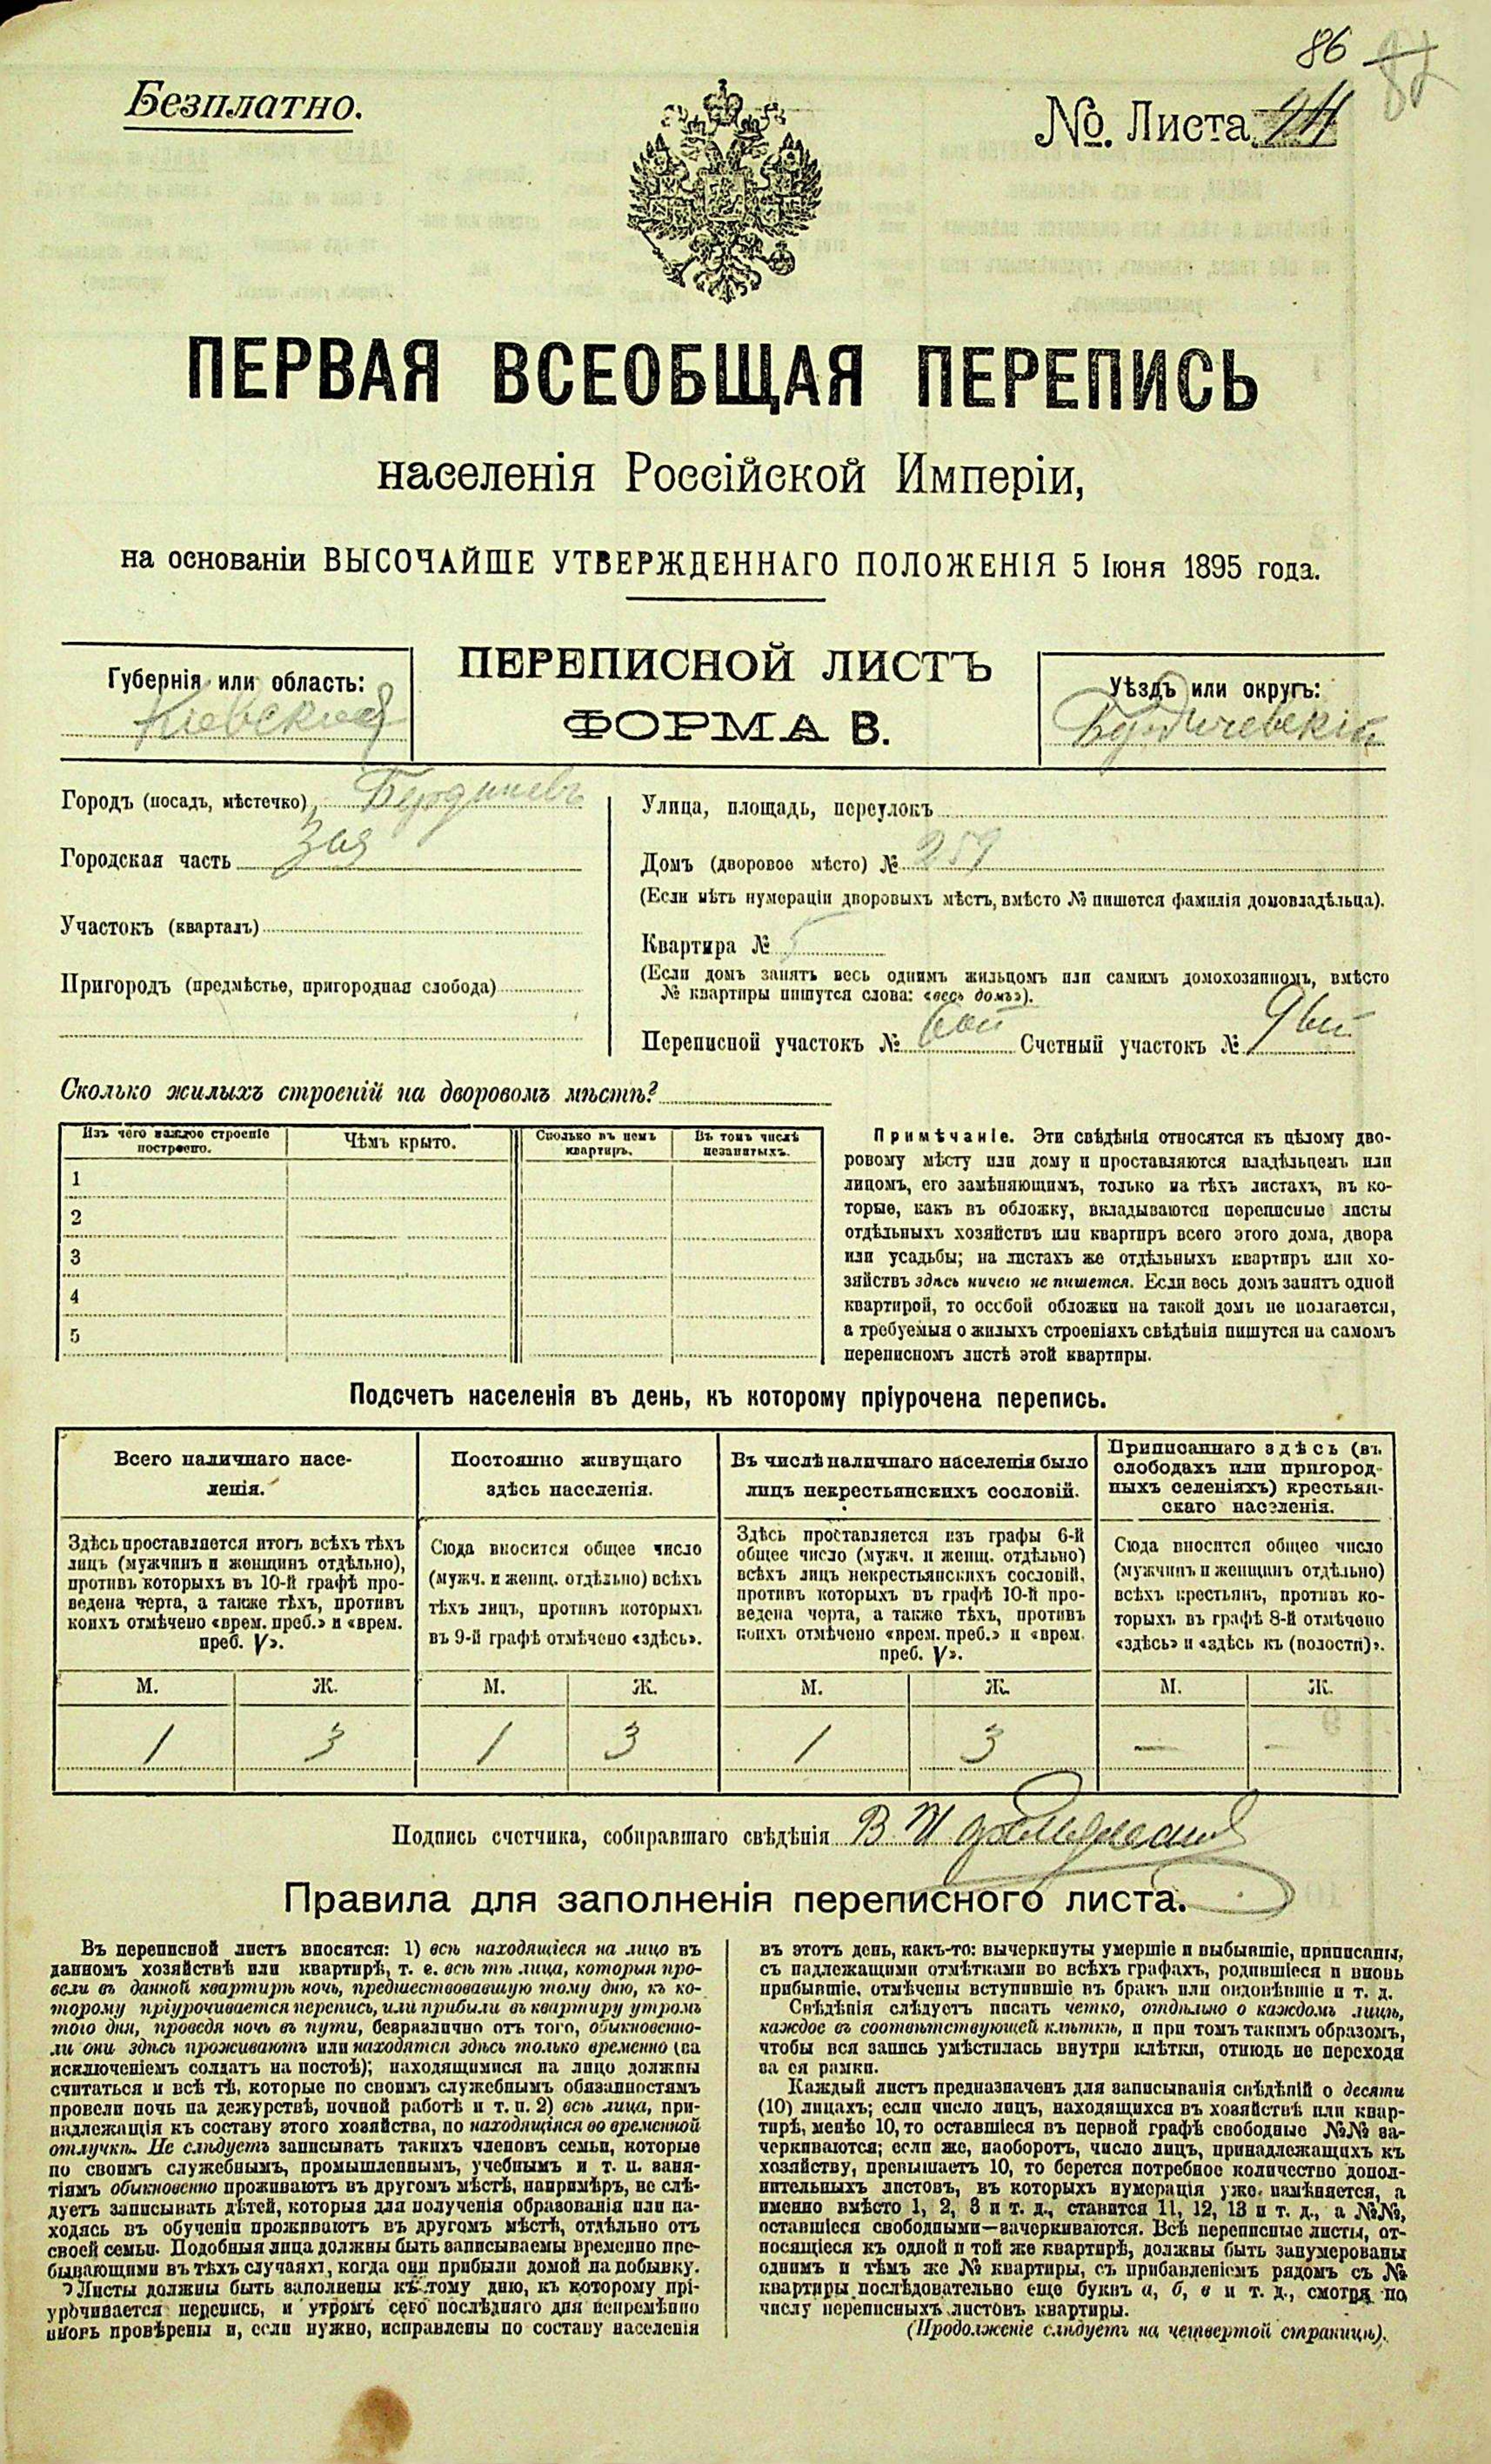 86
Безплатно.
№. Листа 24
ПЕРВАЯ ВСЕОБЩАЯ ПЕРЕПИСЬ
населенія Россійской Имперіи,
на основаніи ВЫСОЧАЙШЕ УТВЕРЖДЕННАГО ПОЛОЖЕНІЯ 5 Іюня 1895 года.
Губернія или область:
Кіевская
ПЕРЕПИСНОЙ ЛИСТЪ
ФОРМА В.
Уѣздъ или округъ:
Бердичевскій
Городъ (посадъ, мѣстечко) Бердичевъ
Городская часть 3ая
Участокъ (кварталъ)
Пригородъ (предмѣстье, пригородная слобода)
Улица, площадь, переулокъ
Домъ (дворовое мѣсто) № 259
(Если нѣтъ нумераціи дворовыхъ мѣстъ, вмѣсто № пишется фамилія домовладѣльца).
Квартира № 5
(Если домъ занятъ весь однимъ жильцомъ или самимъ домохозяиномъ, вмѣсто
№ квартиры пишутся слова: «весь домъ»).
Переписной участокъ № 6ой Счетный участокъ № 9ый
Сколько жилыхъ строеній на дворовомъ мѣстѣ?
Изъ чего каждое строеніе построено. Чѣмъ крыто. Сколько въ немъ квартиръ. Въ томъ числѣ незанятыхъ.
1
2
3
4
5
Примѣчаніе. Эти свѣдѣнія относятся къ цѣлому дво-
ровому мѣсту или дому и проставляются владѣльцемъ или
лицомъ, его замѣняющимъ, только на тѣхъ листахъ, въ ко-
торые, какъ въ обложку, вкладываются переписные листы
отдѣльныхъ хозяйствъ или квартиръ всего этого дома, двора
или усадьбы; на листахъ же отдѣльныхъ квартиръ или хо-
зяйствъ здѣсь ничего не пишется. Если весь домъ занятъ одной
квартирой, то особой обложки на такой домъ не полагается,
а требуемыя о жилыхъ строеніяхъ свѣдѣнія пишутся на самомъ
переписномъ листѣ этой квартиры.
Подсчетъ населенія въ день, къ которому пріурочена перепись.
Всего наличнаго насе-
ленія.
Постоянно живущаго
здѣсь населенія.
Въ числѣ наличнаго населенія было
лицъ некрестьянскихъ сословій.
Приписаннаго здѣсь (въ
слободахъ или пригород-
ныхъ селеніяхъ) крестьян-
скаго населенія.
Здѣсь проставляется итогъ всѣхъ тѣхъ
лицъ (мужчинъ и женщинъ отдѣльно),
противъ которыхъ въ 10-й графѣ про-
ведена черта, а также тѣхъ, противъ
коихъ отмѣчено «врем. преб.» и «врем.
преб. V».
Сюда вносится общее число
(мужч. и женщ. отдѣльно) всѣхъ
тѣхъ лицъ, противъ которыхъ
въ 9-й графѣ отмѣчено «здѣсь».
Здѣсь проставляется изъ графы 6-й
общее число (мужч. и женщ. отдѣльно)
всѣхъ лицъ некрестьянскихъ сословій,
противъ которыхъ въ графѣ 10-й про-
ведена черта, а также тѣхъ, противъ
коихъ отмѣчено «врем. преб.» и «врем.
преб. V».
Сюда вносится общее число
(мужчинъ и женщинъ отдѣльно)
всѣхъ крестьянъ, противъ ко-
торыхъ въ графѣ 8-й отмѣчено
«здѣсь» и «здѣсь къ (волости)».
М. Ж. М. Ж. М. Ж. М. Ж.
1 3 1 3 1 3 — —
Подпись счетчика, собиравшаго свѣдѣнія
Правила для заполненія переписного листа.
Въ переписной листъ вносятся: 1) всѣ находящіеся на лицо въ
данномъ хозяйствѣ или квартирѣ, т. е. всѣ тѣ лица, которыя про-
вели въ данной квартирѣ ночь, предшествовавшую тому дню, къ ко-
торому пріурочивается перепись, или прибыли въ квартиру утромъ
того дня, проведя ночь въ пути, безразлично отъ того, обыкновенно-
ли они здѣсь проживаютъ или находятся здѣсь только временно (за
исключеніемъ солдатъ на постоѣ); находящимися на лицо должны
считаться и всѣ тѣ, которые по своимъ служебнымъ обязанностямъ
провели ночь на дежурствѣ, ночной работѣ и т. п. 2) всѣ лица, при-
надлежащія къ составу этого хозяйства, но находящіяся во временной
отлучкѣ. Не слѣдуетъ записывать такихъ членовъ семьи, которые
по своимъ служебнымъ, промышленнымъ, учебнымъ и т. п. заня-
тіямъ обыкновенно проживаютъ въ другомъ мѣстѣ, напримѣръ, не слѣ-
дуетъ записывать дѣтей, которыя для полученія образованія или на-
ходясь въ обученіи проживаютъ въ другомъ мѣстѣ, отдѣльно отъ
своей семьи. Подобныя лица должны быть записываемы временно пре-
бывающими въ тѣхъ случаяхъ, когда они прибыли домой на побывку.
Листы должны быть заполнены къ тому дню, къ которому прі-
урочивается перепись, и утромъ сего послѣдняго дня непремѣнно
вновь провѣрены и, если нужно, исправлены по составу населенія
въ этотъ день, какъ-то: вычеркнуты умершіе и выбывшіе, приписаны,
съ надлежащими отмѣтками во всѣхъ графахъ, родившіеся и вновь
прибывшіе, отмѣчены вступившіе въ бракъ или овдовѣвшіе и т. д.
Свѣдѣнія слѣдуетъ писать четко, отдѣльно о каждомъ лицѣ,
каждое въ соотвѣтствующей клѣткѣ, и при томъ такимъ образомъ,
чтобы вся запись умѣстилась внутри клѣтки, отнюдь не переходя
за ея рамки.
Каждый листъ предназначенъ для записыванія свѣдѣній о десяти
(10) лицахъ; если число лицъ, находящихся въ хозяйствѣ или квар-
тирѣ, менѣе 10, то оставшіеся въ первой графѣ свободные №№ за-
черкиваются; если же, наоборотъ, число лицъ, принадлежащихъ къ
хозяйству, превышаетъ 10, то берется потребное количество допол-
нительныхъ листовъ, въ которыхъ нумерація уже измѣняется, а
именно вмѣсто 1, 2, 3 и т. д., ставится 11, 12, 13 и т. д., а №№,
оставшіеся свободными—зачеркиваются. Всѣ переписные листы, от-
носящіеся къ одной и той же квартирѣ, должны быть занумерованы
однимъ и тѣмъ же № квартиры, съ прибавленіемъ рядомъ съ №
квартиры послѣдовательно еще буквъ а, б, в и т. д., смотря по
числу переписныхъ листовъ квартиры.
(Продолженіе слѣдуетъ на четвертой страницѣ).